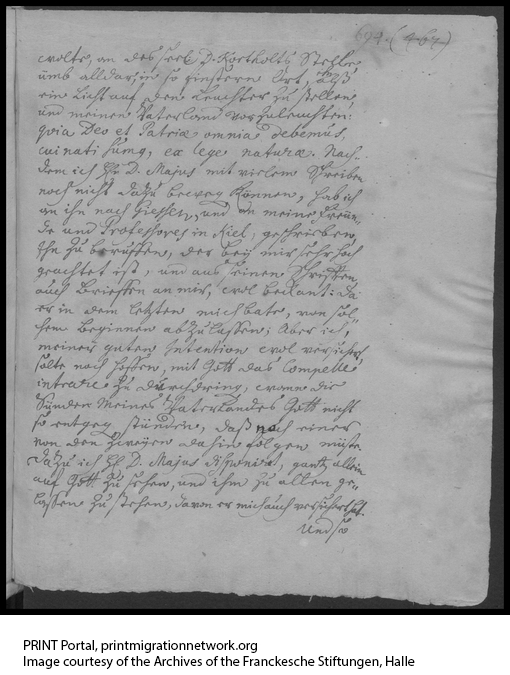 694. (467.)
wolte, an des seel. D. Kortholts Stelle
umb alldar, in so finstern Ort, als
ein Licht auf den Leuchter zu stellen
und meinem Vaterland vorzuleuchten:
quia Deo et Patriæ omnia debemus,
cui nati sumq, ex lege naturæ. Nach-
dem ich H. D. Majus mit vielem Schreiben
noch nicht dazu bewegen können, hab ich
an ihn nach Giessen, und an meine Freun-
de und Professores in Kiel, geschrieben,
Ihn zu beruffen, der bey mir sehr hoch
geachtet ist, und aus seinen Schrifften,
auch Brieffen an mir, wol bekant: Da
er in dem letzten mich bate, von sol-
chem Beginnen abzulassen; Aber ich,
meiner guten Intention wol versichert,
solte noch hoffen, mit Gott das Compelle
intrare zu durchdring, wenn die
Sünden meines Vaterlandes Gott nicht
so entgeg stünden, daß nach einer
von den zweyen dahin folgen müste.
Dazu ich H. D. Majus disponirt, gantz allein
auf Gott zu sehen, und ihm zu allen ge-
lassen zu stehen, davon er mich auch versichert hat.
Und so
PRINT Portal, printmigrationnetwork.org
Image courtesy of the Archives of the Franckesche Stiftungen, Halle